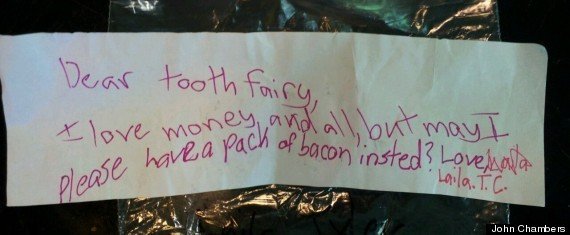 Dear tooth fairy,
I love money, and all, but may I
please have a pack of bacon insted? Love,
Laila. T.C.
John Chambers